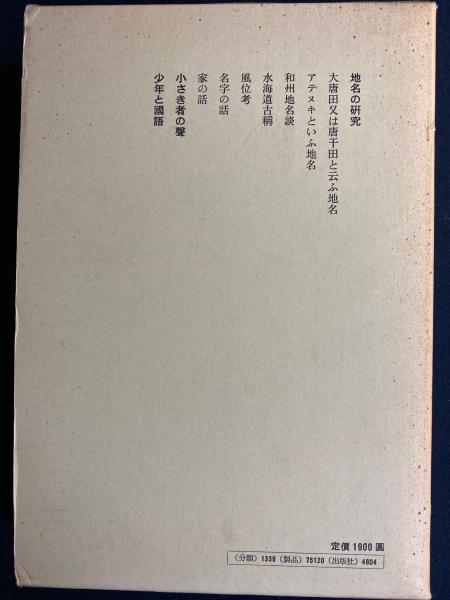 地名の研究
大唐田又は唐干田と云ふ地名
アテヌキといふ地名
和州地名談
水海道古稱
風位考
名字の話
家の話
小さき者の聲
少年と國語
定價1900圓
(分類) 1339 (製品) 75120 (出版社) 4604